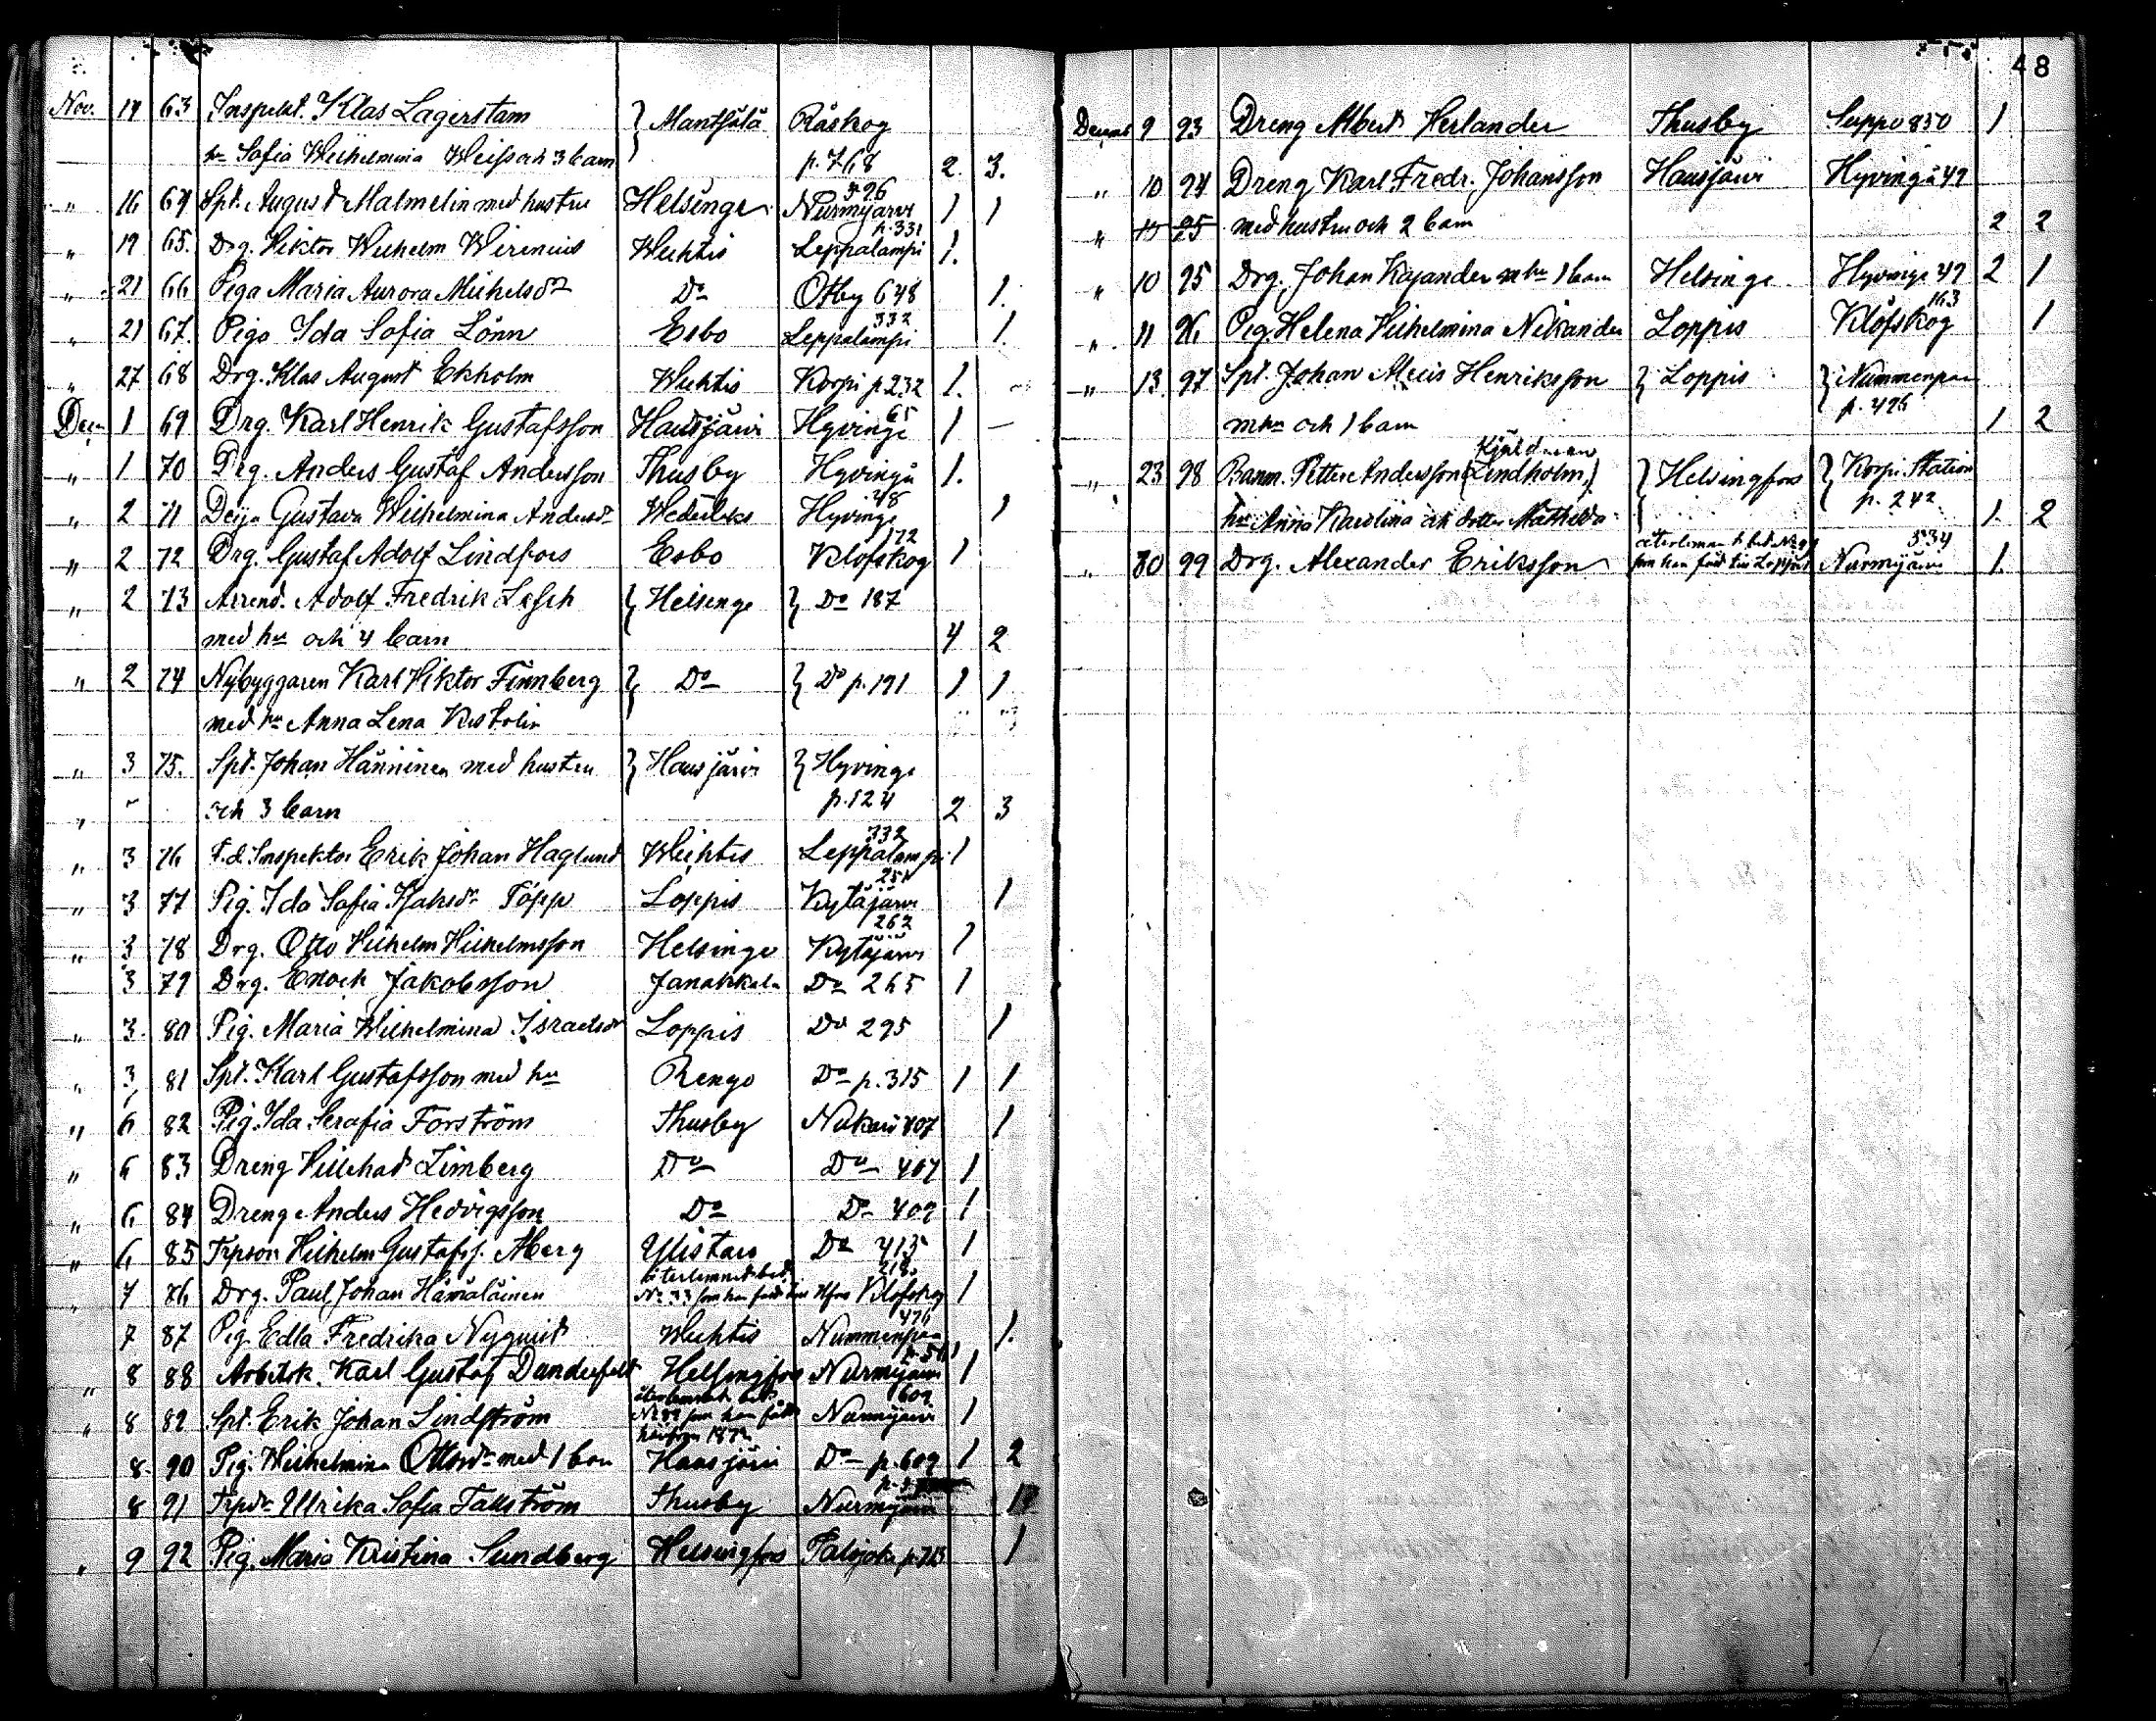 48
Nov. 14 63 Inspekt. Klas Lagerstam } Mantsälä Råskog
hu Sofia Wilhelmina Weiss och 3 barn p. 768 2. 3.
" 16 64 Spt. August Malmelin med hustru Helsinge Nurmijärvi 596 1 1
" 19 65. Drg. Viktor Wilhelm Wirenius Wichtis Leppälampi p. 331 1.
" 21 66 Piga Maria Aurora Michelsdr Do Otby 648 1.
" 21 67. Piga Ida Sofia Lönn Esbo Leppälampi 332 1.
" 27 68 Drg. Klas August Ekholm Wichtis Korpi p. 232 1.
Dec. 1 69 Drg. Karl Henrik Gustafsson Hausjärvi Hyvinge 65 1 —
" 1 70 Drg. Anders Gustaf Andersson Thusby Hyvingä 1.
" 2 71 Deija Gustava Wilhelmina Andersdr Hyvinge 48 1
" 2 72 Drg. Gustaf Adolf Lindfors Esbo Klöfskog 172 1
" 2 73 Arrend. Adolf Fredrik Lesch } Helsinge } Do 187
med hu och 4 barn 4 2
" 2 74 Nybyggaren Karl Viktor Finnberg } Do } Do p. 191 1 1
med hu Anna Lena Kristolin
" 3 75. Spt. Johan Hänninen med hustru } Hausjärvi } Hyvinge
" och 3 barn p. 124 2 3
" 3 76 F.d. Inspektor Erik Johan Haglund Wichtis Leppälampi 332 1
" 3 77 Pig. Ida Sofia Isaksdr Töpp Loppis Kytäjärvi 251 1
" 3 78 Drg. Otto Vilhelm Vilhelmsson Helsinge Kytäjärvi 262 1
3 79 Drg. Enock Jakobsson Janakkala Do 265 1
" 3. 80 Pig. Maria Wilhelmina Israelsdr Loppis Do 295 1
" 3 81 Spt. Karl Gustafsson med hu Rengo Do p. 315 1 1
" 6 82 Pig. Ida Serafia Forström Thusby Nukari 407 1
" 6 83 Dreng Villehad Limberg Do Do 407 1
" 6 84 Dreng Anders Hedvigsson Do Do 409 1
" 6 85 Trpson Vilhelm Gustafss. Åberg Ylistaro Do 415 1
" 7 76 Drg. Paul Johan Hämäläinen återlemnadt bet. No 33 som han fått till Hfors Klöfskog 218 1
7 87 Pig. Edla Fredrika Nyqvist Wichtis Nummenpää 476 1.
" 8 88 Arbetsk. Karl Gustaf Danderfelt Helsingfors Nurmijärvi 1
" 8 89 Spt. Erik Johan Lindström återlemnadt bet. som han fått härifrån Nurmijärvi 609 1
8. 90 Pig. Wilhelmina Ottosdr med 1 barn Hausjärvi Do p. 609 1 2
8 91 Trpdr Ulrika Sofia Takström Thusby Nurmijärvi 1
" 9 92 Pig. Maria Kristina Sundberg Helsingfors Palojoki p. 715 1
Decemb 9 93 Dreng Albert Herlander Thusby Seppo 850 1
" 10 94 Dreng Karl Fredr. Johansson Hausjärvi Hyvingä 49
" 10 95 med hustru och 2 barn 2 2
" 10 95 Drg. Johan Kajander m hu 1 barn Helsinge Hyvinge 49 2 1
" 11 96 Pig. Helena Vilhelmina Nikander Loppis Klöfskog 163 1
" 13 97 Spt. Johan Henriksson } Loppis } Nummenpää
m hu och 1 barn p. 496 1 2
" 23 98 Banm. Petter Andersson (Lindholm) Kjäldman } Helsingfors } Korpi Station
hu Anna Karolina och dotter Mathilda p. 242 1. 2
" 30 99 Drg. Alexander Eriksson återlemnadt bet. No 94 som han fått till Loppis Nurmijärvi 534 1.